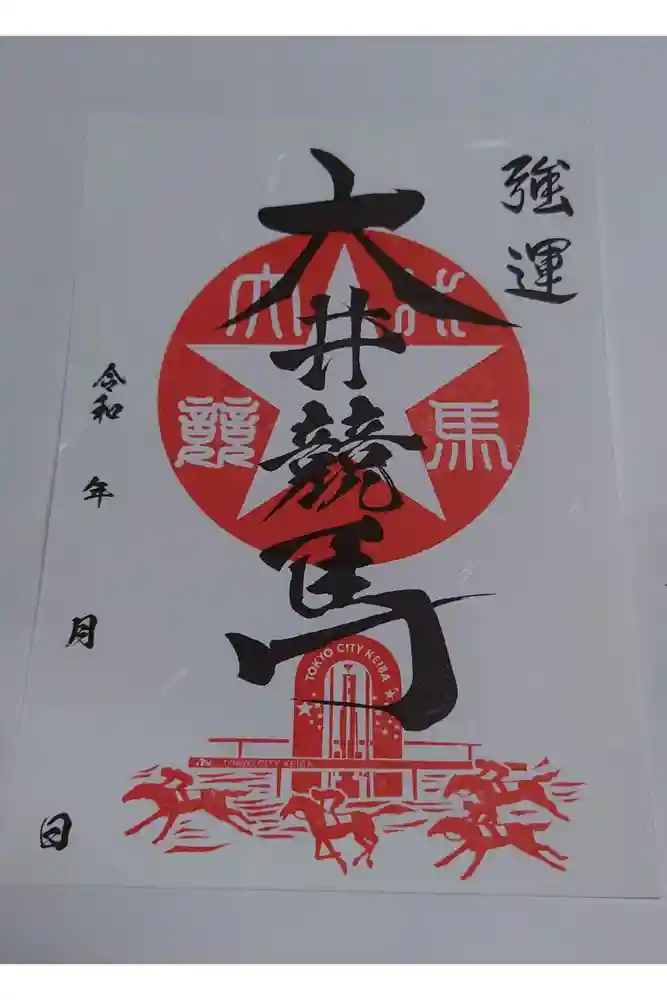 強運
大井競馬
大井
競馬
TOKYO CITY KEIBA
TOKYO CITY KEIBA
令和 年 月 日